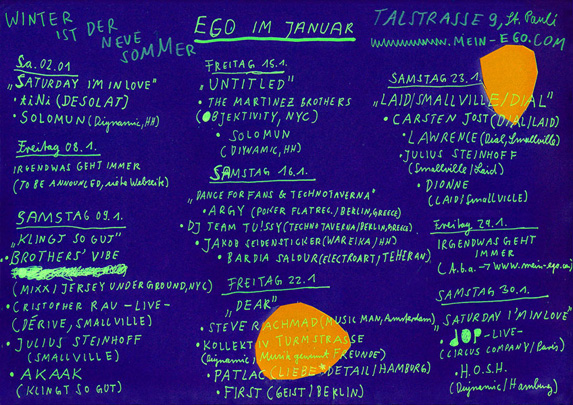 WINTER
IST DER
NEUE
SOMMER
EGO IM JANUAR
TALSTRASSE 9, St. Pauli
WWW.MEIN-EGO.COM
Sa. 02.01
„SATURDAY I'M IN LOVE"
• tiNi (DESOLAT)
• SOLOMUN (Diynamic, HH)
Freitag 08.1.
IRGENDWAS GEHT IMMER
(TO BE ANNOUNCED, siehe Webseite)
SAMSTAG 09.1.
„KLINGT SO GUT"
• BROTHERS' VIBE
(MIXX / JERSEY UNDERGROUND, NYC)
• CRISTOPHER RAU -LIVE-
(DÉRIVE, SMALLVILLE)
• JULIUS STEINHOFF
(SMALLVILLE)
• AKAAK
(KLINGT SO GUT)
FREITAG 15.1.
„UNTITLED"
• THE MARTINEZ BROTHERS
(OBJEKTIVITY, NYC)
• SOLOMUN
(DIYNAMIC, HH)
SAMSTAG 16.1.
„DANCE FOR FANS & TECHNOTAVERNA"
• ARGY (POKER FLAT REC. / BERLIN, GREECE)
• DJ TEAM TU!SSY (TECHNOTAVERNA/BERLIN, GREECE)
• JAKOB SEIDENSTICKER (WAREIKA / HH)
• BARDIA SALOUR (ELECTROART / TEHERAN)
FREITAG 22.1
„DEAR"
• STEVE RACHMAD (MUSIC MAN, Amsterdam)
• KOLLEKTIV TURMSTRASSE
(Diynamic / Musik gewinnt FREUNDE)
• PATLAC (LIEBE*DETAIL / HAMBURG)
• FIRST (GEIST / BERLIN)
SAMSTAG 23.1.
„LAID/SMALLVILLE/DIAL"
• CARSTEN JOST (DIAL/LAID)
• LAWRENCE (Dial, Smallville)
• JULIUS STEINHOFF
(Smallville / Laid)
• DIONNE
(LAID / SMALLVILLE)
Freitag 29.1.
IRGENDWAS GEHT
IMMER
(t.b.a. → www.mein-ego.com)
SAMSTAG 30.1.
„SATURDAY I'M IN LOVE"
• dOP -LIVE-
(CIRCUS COMPANY / Paris)
• H.O.S.H.
(Diynamic / Hamburg)